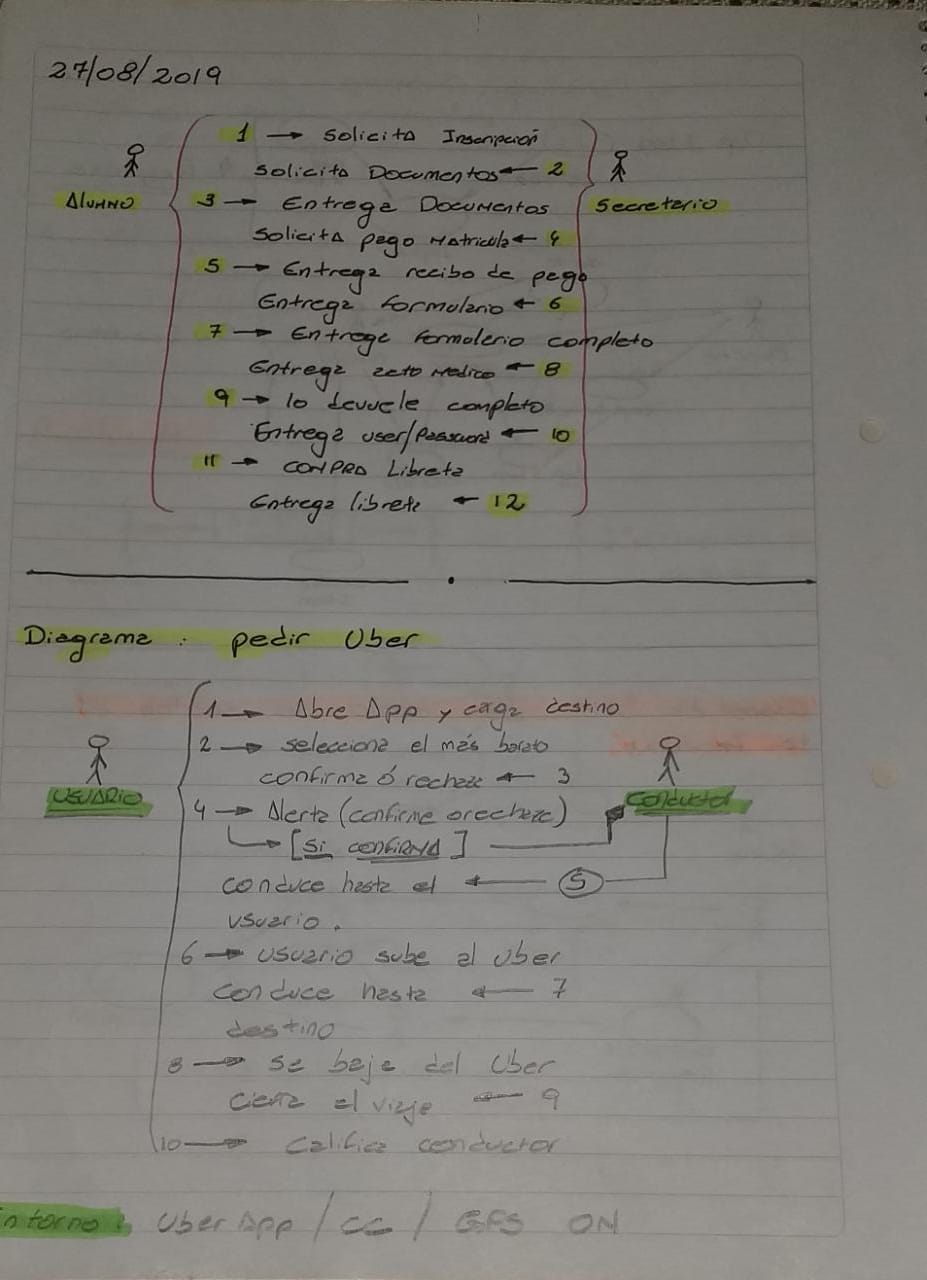 27/08/2019
1 → Solicita Inscripción
Solicita Documentos ← 2
Alumno 3 → Entrega Documentos Secretario
Solicita pago Matricula ← 4
5 → Entrega recibo de pago
Entrega formulario ← 6
7 → Entrega formulario completo
Entrega acto Medico ← 8
9 → lo devuele completo
Entrega user/Password ← 10
11 → COMPRA Libreta
Entrega libreta ← 12
Diagrama : pedir Uber
1 → Abre App y caga destino
2 → selecciona el más barato
confirma ó rechaza ← 3
USUARIO 4 → Alerta (confirma o rechaza) Conductor
→ [Si CONFIRMA]
conduce hasta el ← 5
usuario.
6 → usuario sube al Uber
Conduce hasta ← 7
destino
8 → se baja del Uber
cierra el viaje ← 9
10 → Califica conductor
ntorno: Uber App / CC / GPS ON